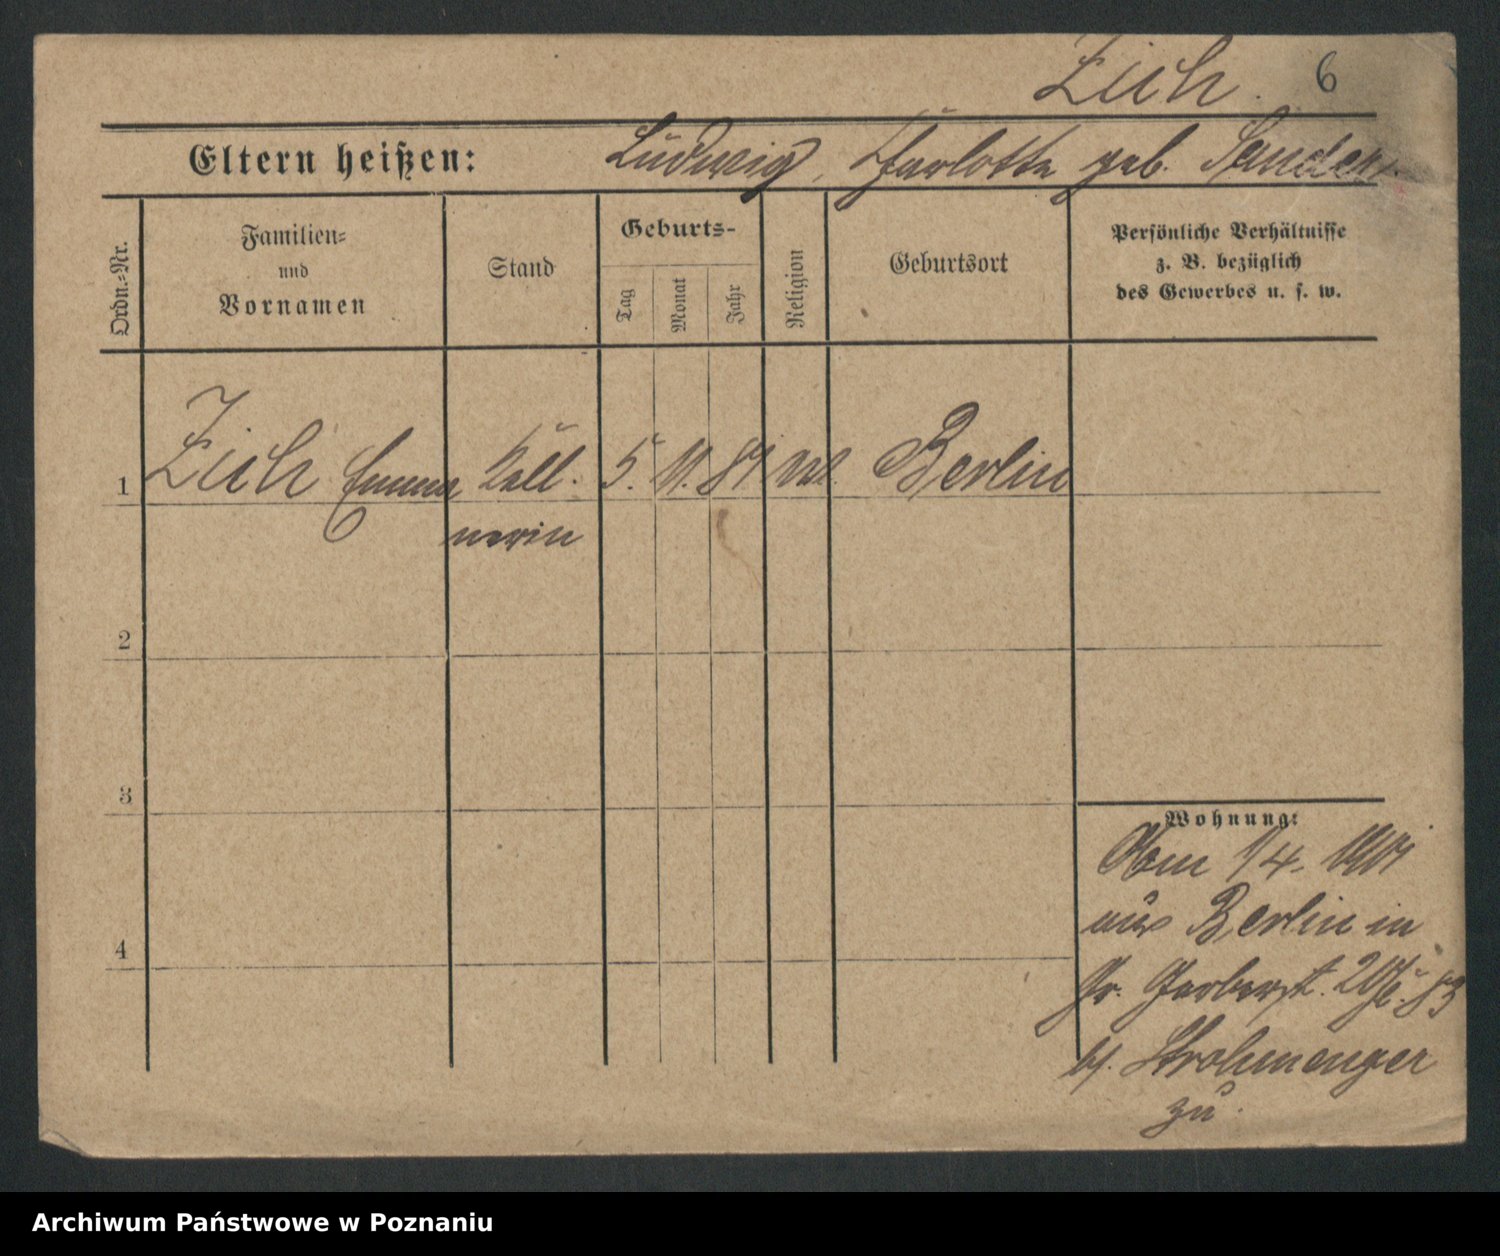 Zich. 6
Eltern heißen: Ludwig, Charlotte geb. Sander.
Ordn.-Nr.
Familien-
und
Vornamen
Stand
Geburts-
Tag
Monat
Jahr
Religion
Geburtsort
Persönliche Verhältnisse
z. B. bezüglich
des Gewerbes u. s. w.
1 Zich Emma Kell- 5. 11. 81 Berlin
nerin
2
3
Wohnung:
Vom 1/4.
aus Berlin in
Gr. Gerberst.
b/. Strohmenger
zu.
4
Archiwum Państwowe w Poznaniu